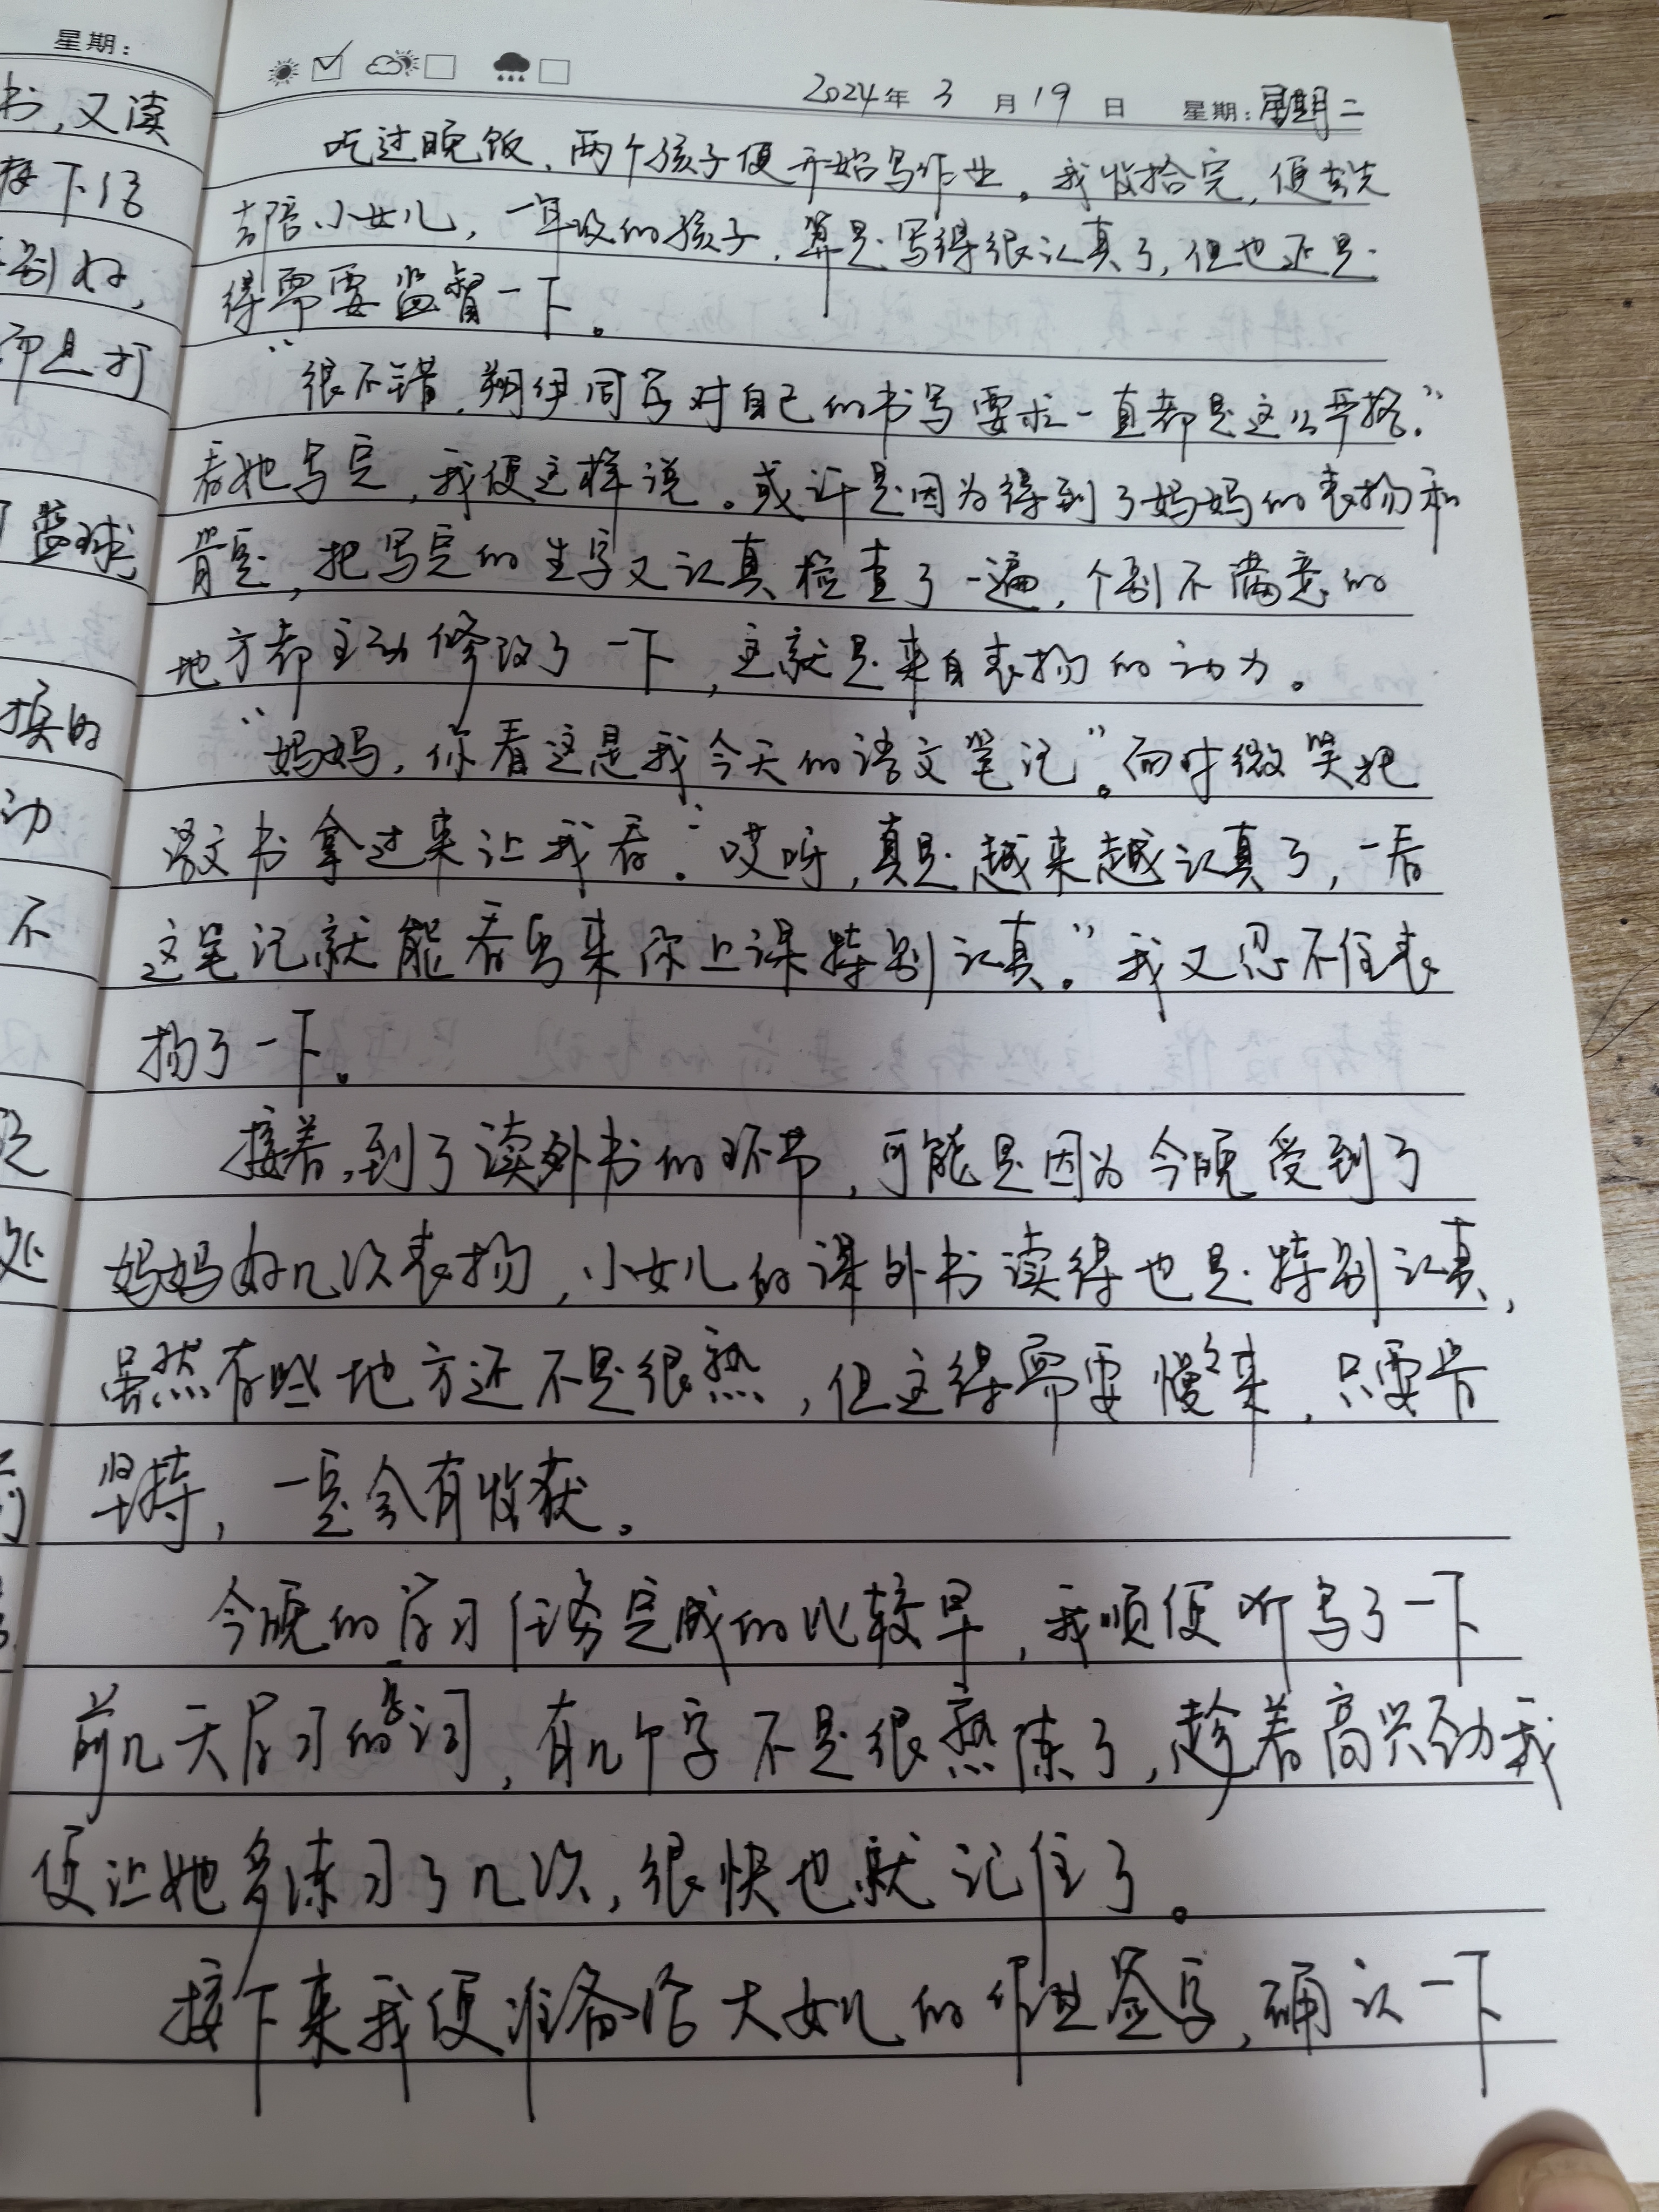 星期:
书,又读
接下信
别好,
而且打
篮球,
换的
动
不
处
2024年 3 月 19 日 星期:星期二
吃过晚饭,两个孩子便开始写作业。我收拾完,便先
去陪小女儿,一年级的孩子,算是写得很认真了,但也还是
得需要监督一下。
“很不错,朔伊同学对自己的书写要求一直都是这么严格。”
看她写完,我便这样说。或许是因为得到了妈妈的表扬和
肯定,把写完的生字又认真检查了一遍,个别不满意的
地方都主动修改了一下,这就是来自表扬的动力。
“妈妈,你看这是我今天的语文笔记”。面时微笑把
语文书拿过来让我看。“哎呀,真是越来越认真了,一看
这笔记就能看出来你上课特别认真。”我又忍不住表
扬了一下。
接着,到了读外书的环节,可能是因为今晚受到了
妈妈好几次表扬,小女儿的课外书读得也是特别认真,
虽然有些地方还不是很熟,但这得需要慢々来,只要肯
坚持,一定会有收获。
今晚的学习任务完成的比较早,我顺便听写了一下
前几天学习的生词,有几个字不是很熟练了,趁着高兴劲我
便让她多练习了几次,很快也就记住了。
接下来我便准备给大女儿的作业签字,确认一下